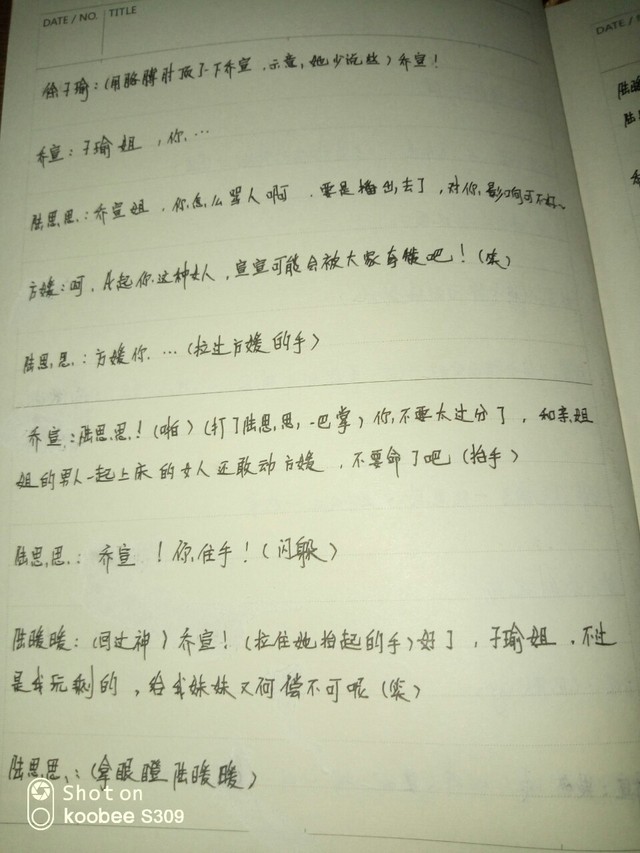 DATE / NO. TITLE
DATE / N
徐子瑜：(用胳膊肘顶了一下乔宣，示意，她少说些) 乔宣！
乔宣：子瑜姐，你…
陆思思：乔宣姐，你怎么骂人啊，要是播出去了，对你影响可不好。
方媛：呵，比起你这种女人，宣宣可能会被大家夸赞吧！(笑)
陆思思：方媛你…(拉过方媛的手)
乔宣：陆思思！(啪) (打了陆思思一巴掌) 你不要太过分了，和亲姐
姐的男人一起上床的女人还敢动方媛，不要命了吧 (抬手)
陆思思：乔宣！你住手！(闪躲)
陆暖暖：(回过神) 乔宣！(拉住她抬起的手) 好了，子瑜姐，不过
是我玩剩的，给我妹妹又何偿不可呢 (笑)
陆思思：(拿眼瞪陆暖暖)
Shot on
koobee S309